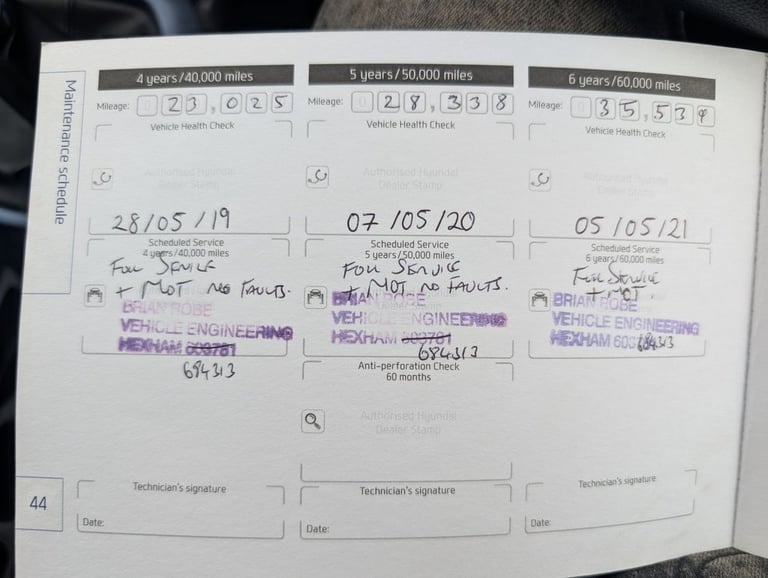 Maintenance schedule
4 years/40,000 miles
Mileage: 0 23,025
Vehicle Health Check
Authorised Hyundai
Dealer Stamp
28/05/19
Scheduled Service
4 years/40,000 miles
FULL SERVICE
+ MOT NO FAULTS.
BRIAN ROBE
VEHICLE ENGINEERING
HEXHAM 603781
684313
Technician's signature
Date:
5 years/50,000 miles
Mileage: 0 28,338
Vehicle Health Check
Authorised Hyundai
Dealer Stamp
07/05/20
Scheduled Service
5 years/50,000 miles
FULL SERVICE
+ MOT NO FAULTS.
BRIAN ROBE
VEHICLE ENGINEERING
HEXHAM 603781
684313
Anti-perforation Check
60 months
Authorised Hyundai
Dealer Stamp
Technician's signature
Date:
6 years/60,000 miles
Mileage: 0 35,539
Vehicle Health Check
Authorised Hyundai
Dealer Stamp
05/05/21
Scheduled Service
6 years/60,000 miles
Full Service
+ MOT.
BRIAN ROBE
VEHICLE ENGINEERING
HEXHAM
684313
Technician's signature
Date:
44